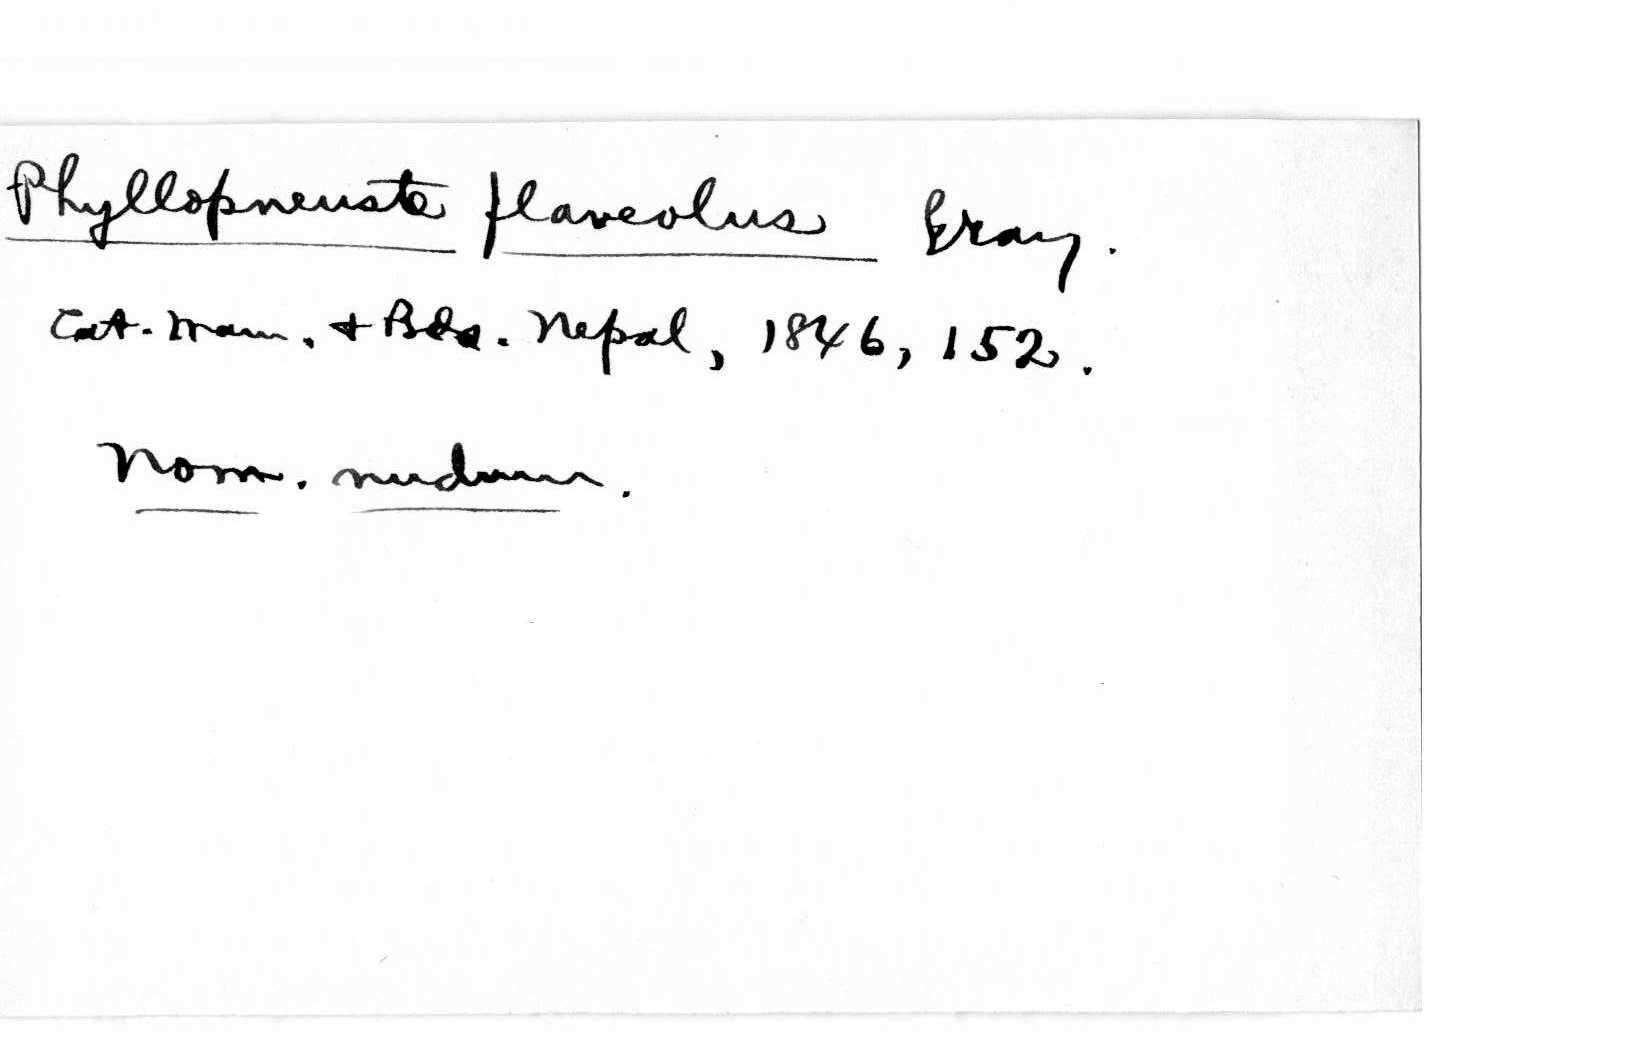 Phyllopneuste flaveolus Gray.
Cat. Mam. + Bds. Nepal, 1846, 152.
Nom. nudum.